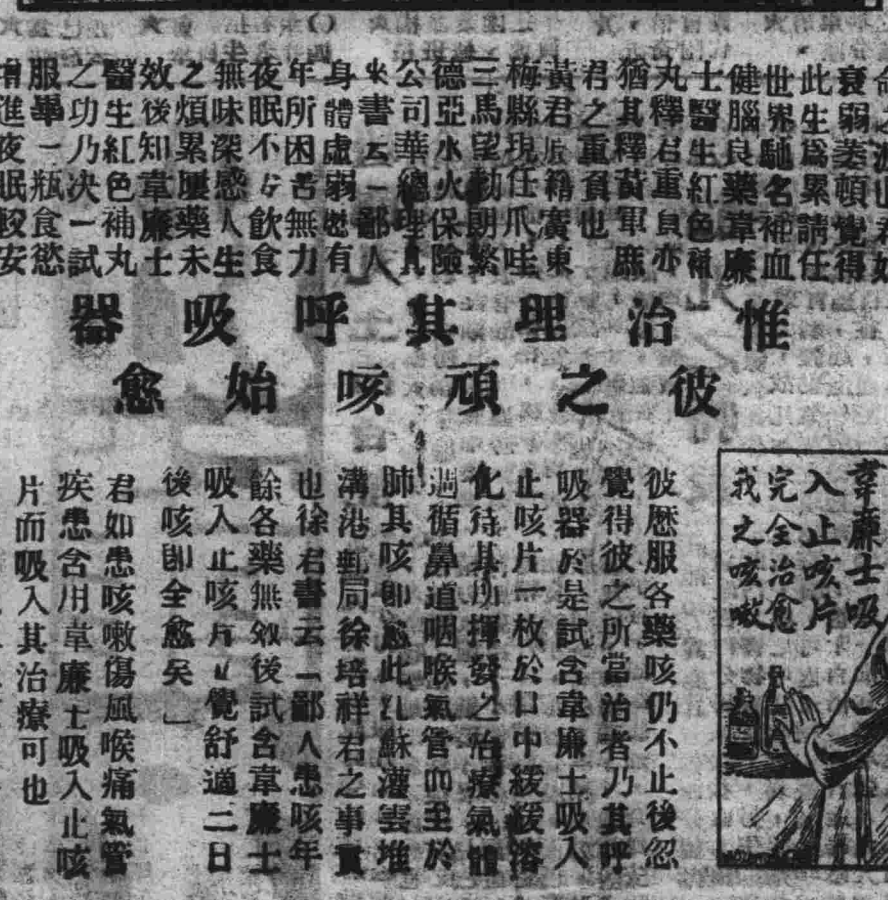 衰弱萎頓覺得
此生爲累請任
世界馳名補血
健腦良藥韋廉
士醫生紅色補
丸釋君重負亦
猶其釋黃軍庶
君之重負也
黃君原籍廣東
梅縣現任爪哇
三馬望勃朗繁
德亞水火保險
公司華總理其
來書云「鄙人
身體虛弱愁有
年所困苦無力
夜眠不安飲食
無味深感人生
之煩累屢藥未
效後知韋廉士
醫生紅色補丸
之功乃决一試
服畢一瓶食慾
增進夜眠較安
惟治理其呼吸器
彼之頑咳始愈
韋廉士吸
入止咳片
完全治愈
我之咳嗽
彼歷服各藥咳仍不止後忽
覺得彼之所當治者乃其呼
吸器於是試含韋廉士吸入
止咳片一枚於口中緩緩溶
化待其所揮發之治療氣體
週循鼻道咽喉氣管而至於
肺其咳卽愈此江蘇灌雲堆
溝港郵局徐培祥君之事實
也徐君書云「鄙人患咳年
餘各藥無效後試含韋廉士
吸入止咳片立覺舒適二日
後咳卽全愈矣」
君如患咳嗽傷風喉痛氣管
疾患含用韋廉士吸入止咳
片而吸入其治療可也